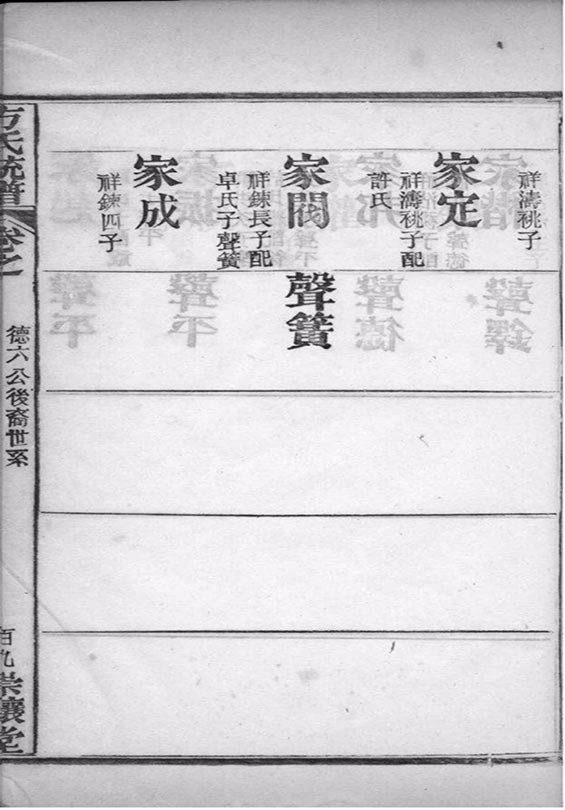 祥濤祧子
家定
祥濤祧子配
許氏
家閥
祥鍊長子配
卓氏子聲簧
聲簧
家成
祥鍊四子
方氏統譜
卷之
德六公後裔世系
百九
崇讓堂